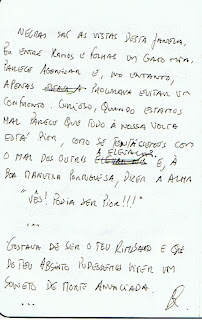 NEGRAS SÃO AS VISTAS DESTA JANELA,
EM ENTRE RAMOS E FOLHAS UM GATO MIA,
PARECE AGONIZAR E, NO ENTANTO,
APENAS PROCURAVA EVITAR UM
CONFRONTO. CURIOSO, QUANDO ESTAMOS
MAL PARECE QUE TUDO À NOSSA VOLTA
ESTÁ PIOR, COMO SE
O MAL DOS OUTROS E, À
BOA MANEIRA PORTUGUESA, DIZER À ALMA
"VÊS! PODIA SER PIOR!!!"
...
GOSTAVA DE SER O TEU RIMBAUD E QUE
DO TEU ABSINTO PUDESSEMOS VIVER UM
SONETO DE MORTE ANUNCIADA.
...